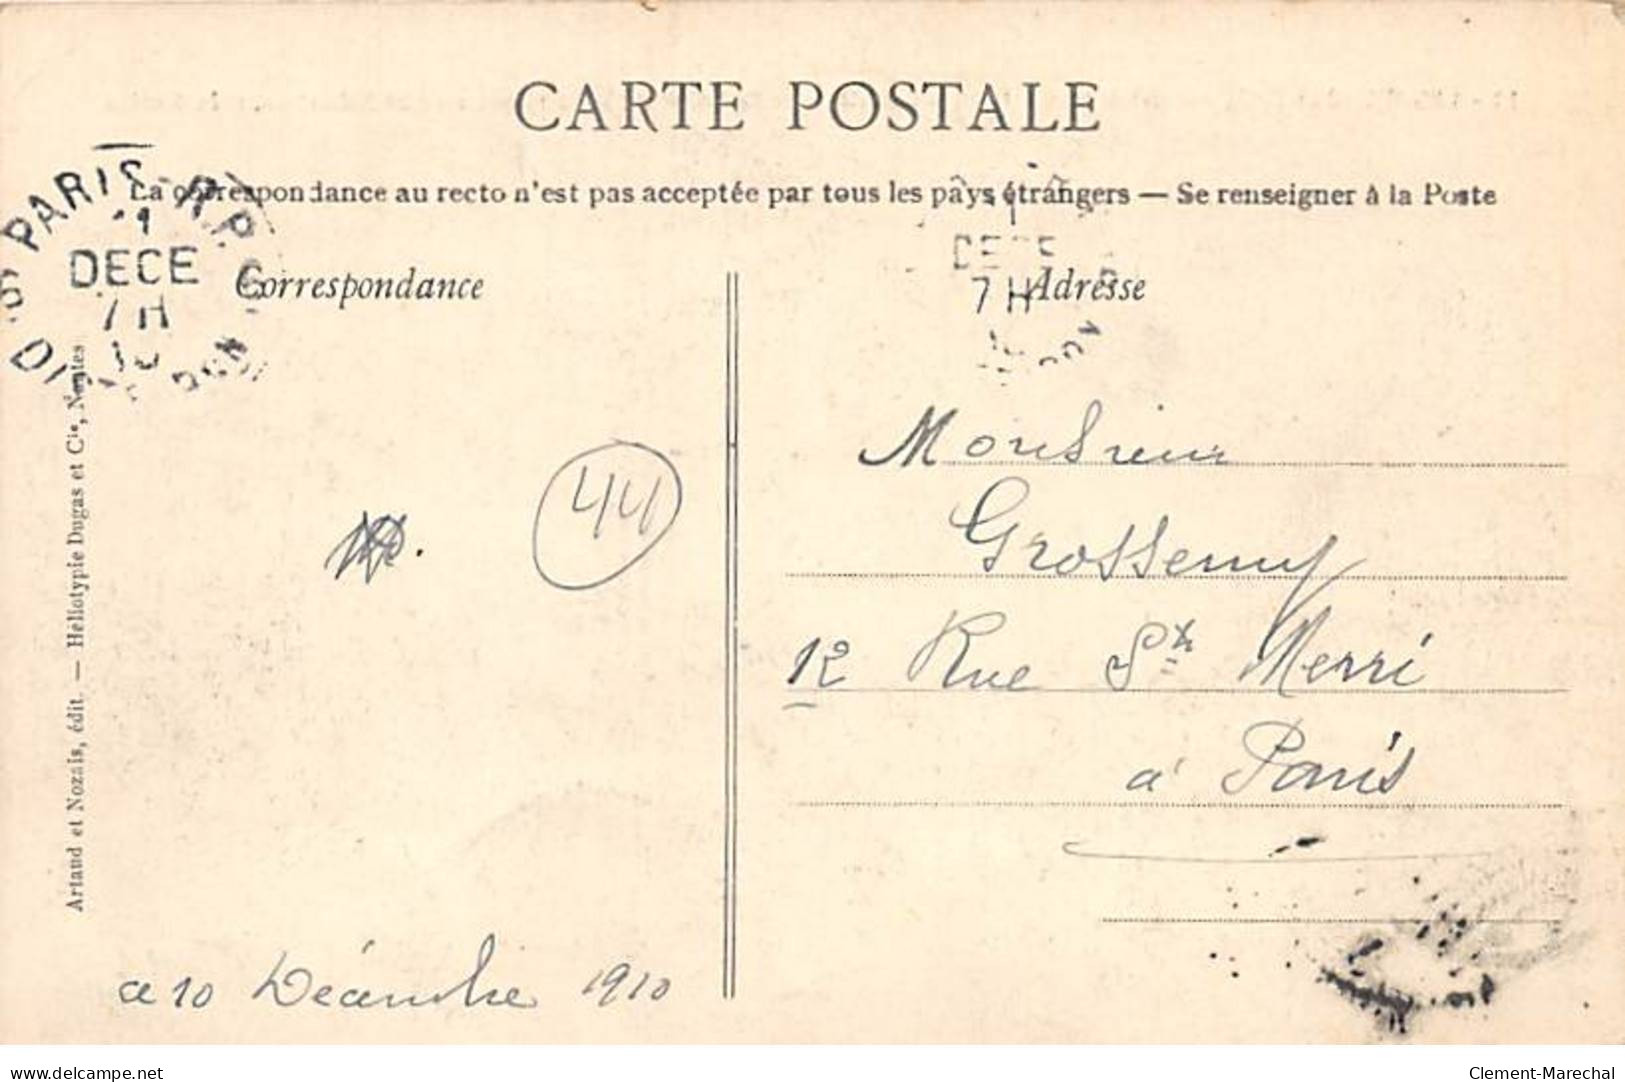 CARTE POSTALE
La correspondance au recto n'est pas acceptée par tous les pays étrangers — Se renseigner à la Poste
PARIS R.P.
11
DECE
7H
10
DECE
7H
Correspondance
Adresse
Artaud et Nozais, édit. — Héliotypie Dugas et Cie, Nantes
44
Monsieur
Grossemy
12 Rue St Merri
à Paris
ce 10 Décembre 1910
www.delcampe.net
Clement-Marechal